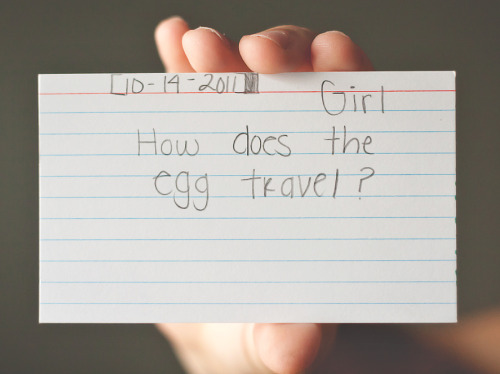 [10-14-2011]
Girl
How does the
egg travel?